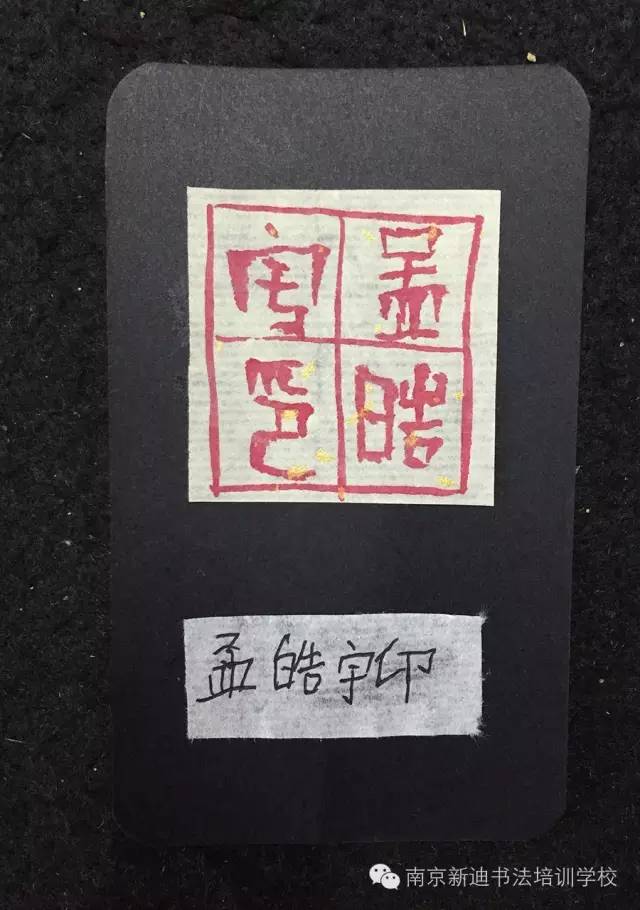 孟皓
宇印
孟皓宇印
南京新迪书法培训学校